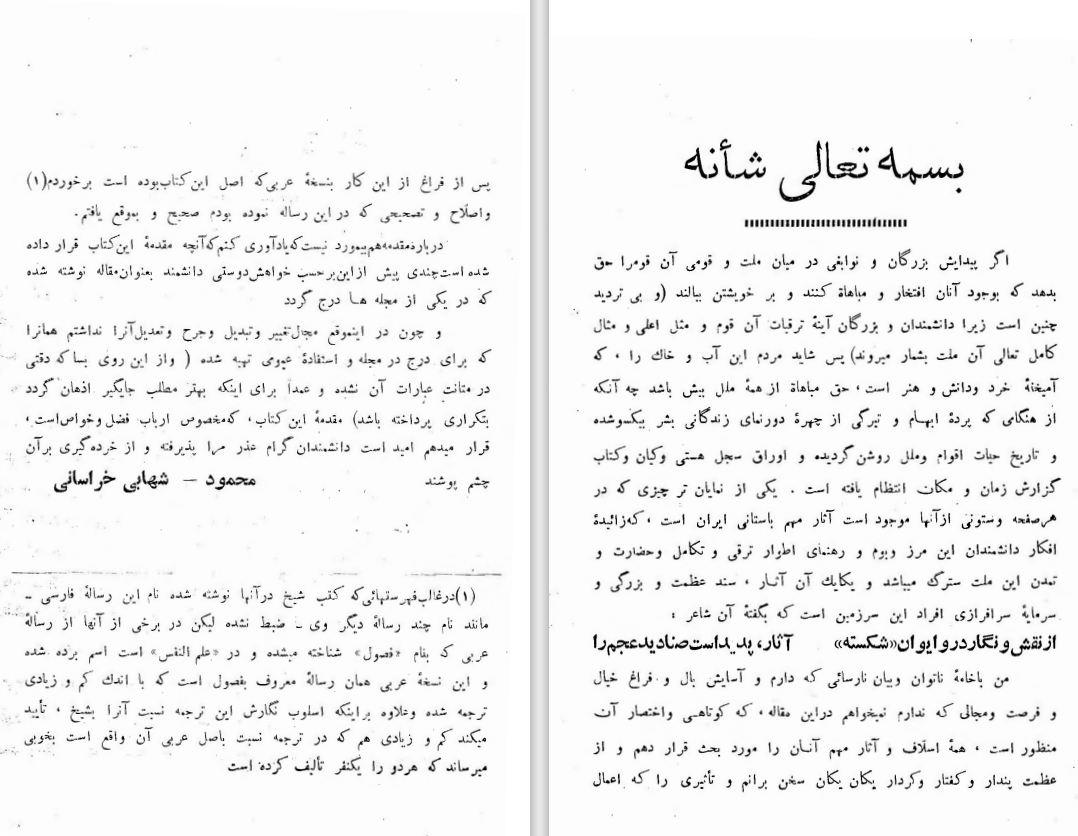 بسمه تعالی شأنه
اگر پیدایش بزرگان و نوابغی در میان ملت و قومی آن قومرا حق
بدهد که بوجود آنان افتخار و مباهاة کنند و بر خویشتن ببالند (و بی تردید
چنین است زیرا دانشمندان و بزرگان آینهٔ ترقیات آن قوم و مثل اعلی و مثال
کامل تعالی آن ملت بشمار میروند) پس شاید مردم این آب و خاك را ، که
آمیختهٔ خرد ودانش و هنر است ، حق مباهاة از همهٔ ملل بیش باشد چه آنکه
از هنگامی که پردهٔ ابهام و تیرگی از چهرهٔ دورنمای زندگانی بشر بیکسوشده
و تاریخ حیات اقوام وملل روشن گردیده و اوراق سجل هستی وکیان وکتاب
گزارش زمان و مکان انتظام یافته است . یکی از نمایان تر چیزی که در
هرصفحه وستونی ازآنها موجود است آثار مهم باستانی ایران است ، که زائیدهٔ
افکار دانشمندان این مرز وبوم و رهنمای اطوار ترقی و تکامل وحضارت و
تمدن این ملت سترك میباشد و یکایك آن آثار ، سند عظمت و بزرگی و
سرمایهٔ سرافرازی افراد این سرزمین است که بگفتهٔ آن شاعر :
از نقش و نگار در و ایوان «شکسته» آثار، پدیداست صنادید عجم را
من باخامهٔ ناتوان وبیان نارسائی که دارم و آسایش بال و فراغ خیال
و فرصت ومجالی که ندارم نمیخواهم دراین مقاله ، که کوتاهی واختصار آن
منظور است ، همهٔ اسلاف و آثار مهم آنان را مورد بحث قرار دهم و از
عظمت پندار وکفتار وکردار یکان یکان سخن برانم و تأثیری را که اعمال
پس از فراغ از این کار بنسخهٔ عربی‌که اصل این‌کتاب‌بوده است برخوردم(۱)
واصلاح و تصحیحی که در این رساله نموده بودم صحیح و بموقع یافتم.
دربارهٔمقدمه‌هم‌بیمورد نیست‌که‌یادآوری کنم‌که‌آنچه مقدمهٔ این‌کتاب قرار داده
شده است‌چندی پیش از‌این‌برحسب خواهش‌دوستی دانشمند بعنوان‌مقاله نوشته شده
که در یکی از مجله ها درج گردد
و چون در اینموقع مجال‌تغییر وتبدیل وجرح وتعدیل‌آنرا نداشتم همانرا
که برای درج در مجله و استفادهٔ عمومی تهیه شده ( واز این روی بسا که دقتی
در متانت عبارات آن نشده و عمداً برای اینکه بهتر مطلب جایگیر اذهان گردد
بتکراری پرداخته باشد) مقدمهٔ این کتاب ، که‌مخصوص ارباب فضل وخواص‌است ،
قرار میدهم امید است دانشمندان گرام عذر مرا پذیرفته و از خرده‌گیری برآن
چشم پوشند محمود – شهابی خراسانی
(۱)درغالب‌فهرستهائی‌که کتب شیخ درآنها نوشته شده نام این رسالهٔ فارسی ـ
مانند نام چند رسالهٔ دیگر وی ـ ضبط نشده لیکن در برخی از آنها از رسالهٔ
عربی که بنام «فصول» شناخته میشده و در «علم النفس» است اسم برده شده
و این نسخهٔ عربی همان رسالهٔ معروف بفصول است که با اندك کم و زیادی
ترجمه شده وعلاوه براینکه اسلوب نگارش این ترجمه نسبت آنرا بشیخ ، تأیید
میکند کم و زیادی هم که در ترجمه نسبت باصل عربی آن واقع است بخوبی
میرساند که هردو را یکنفر تألیف کرده است